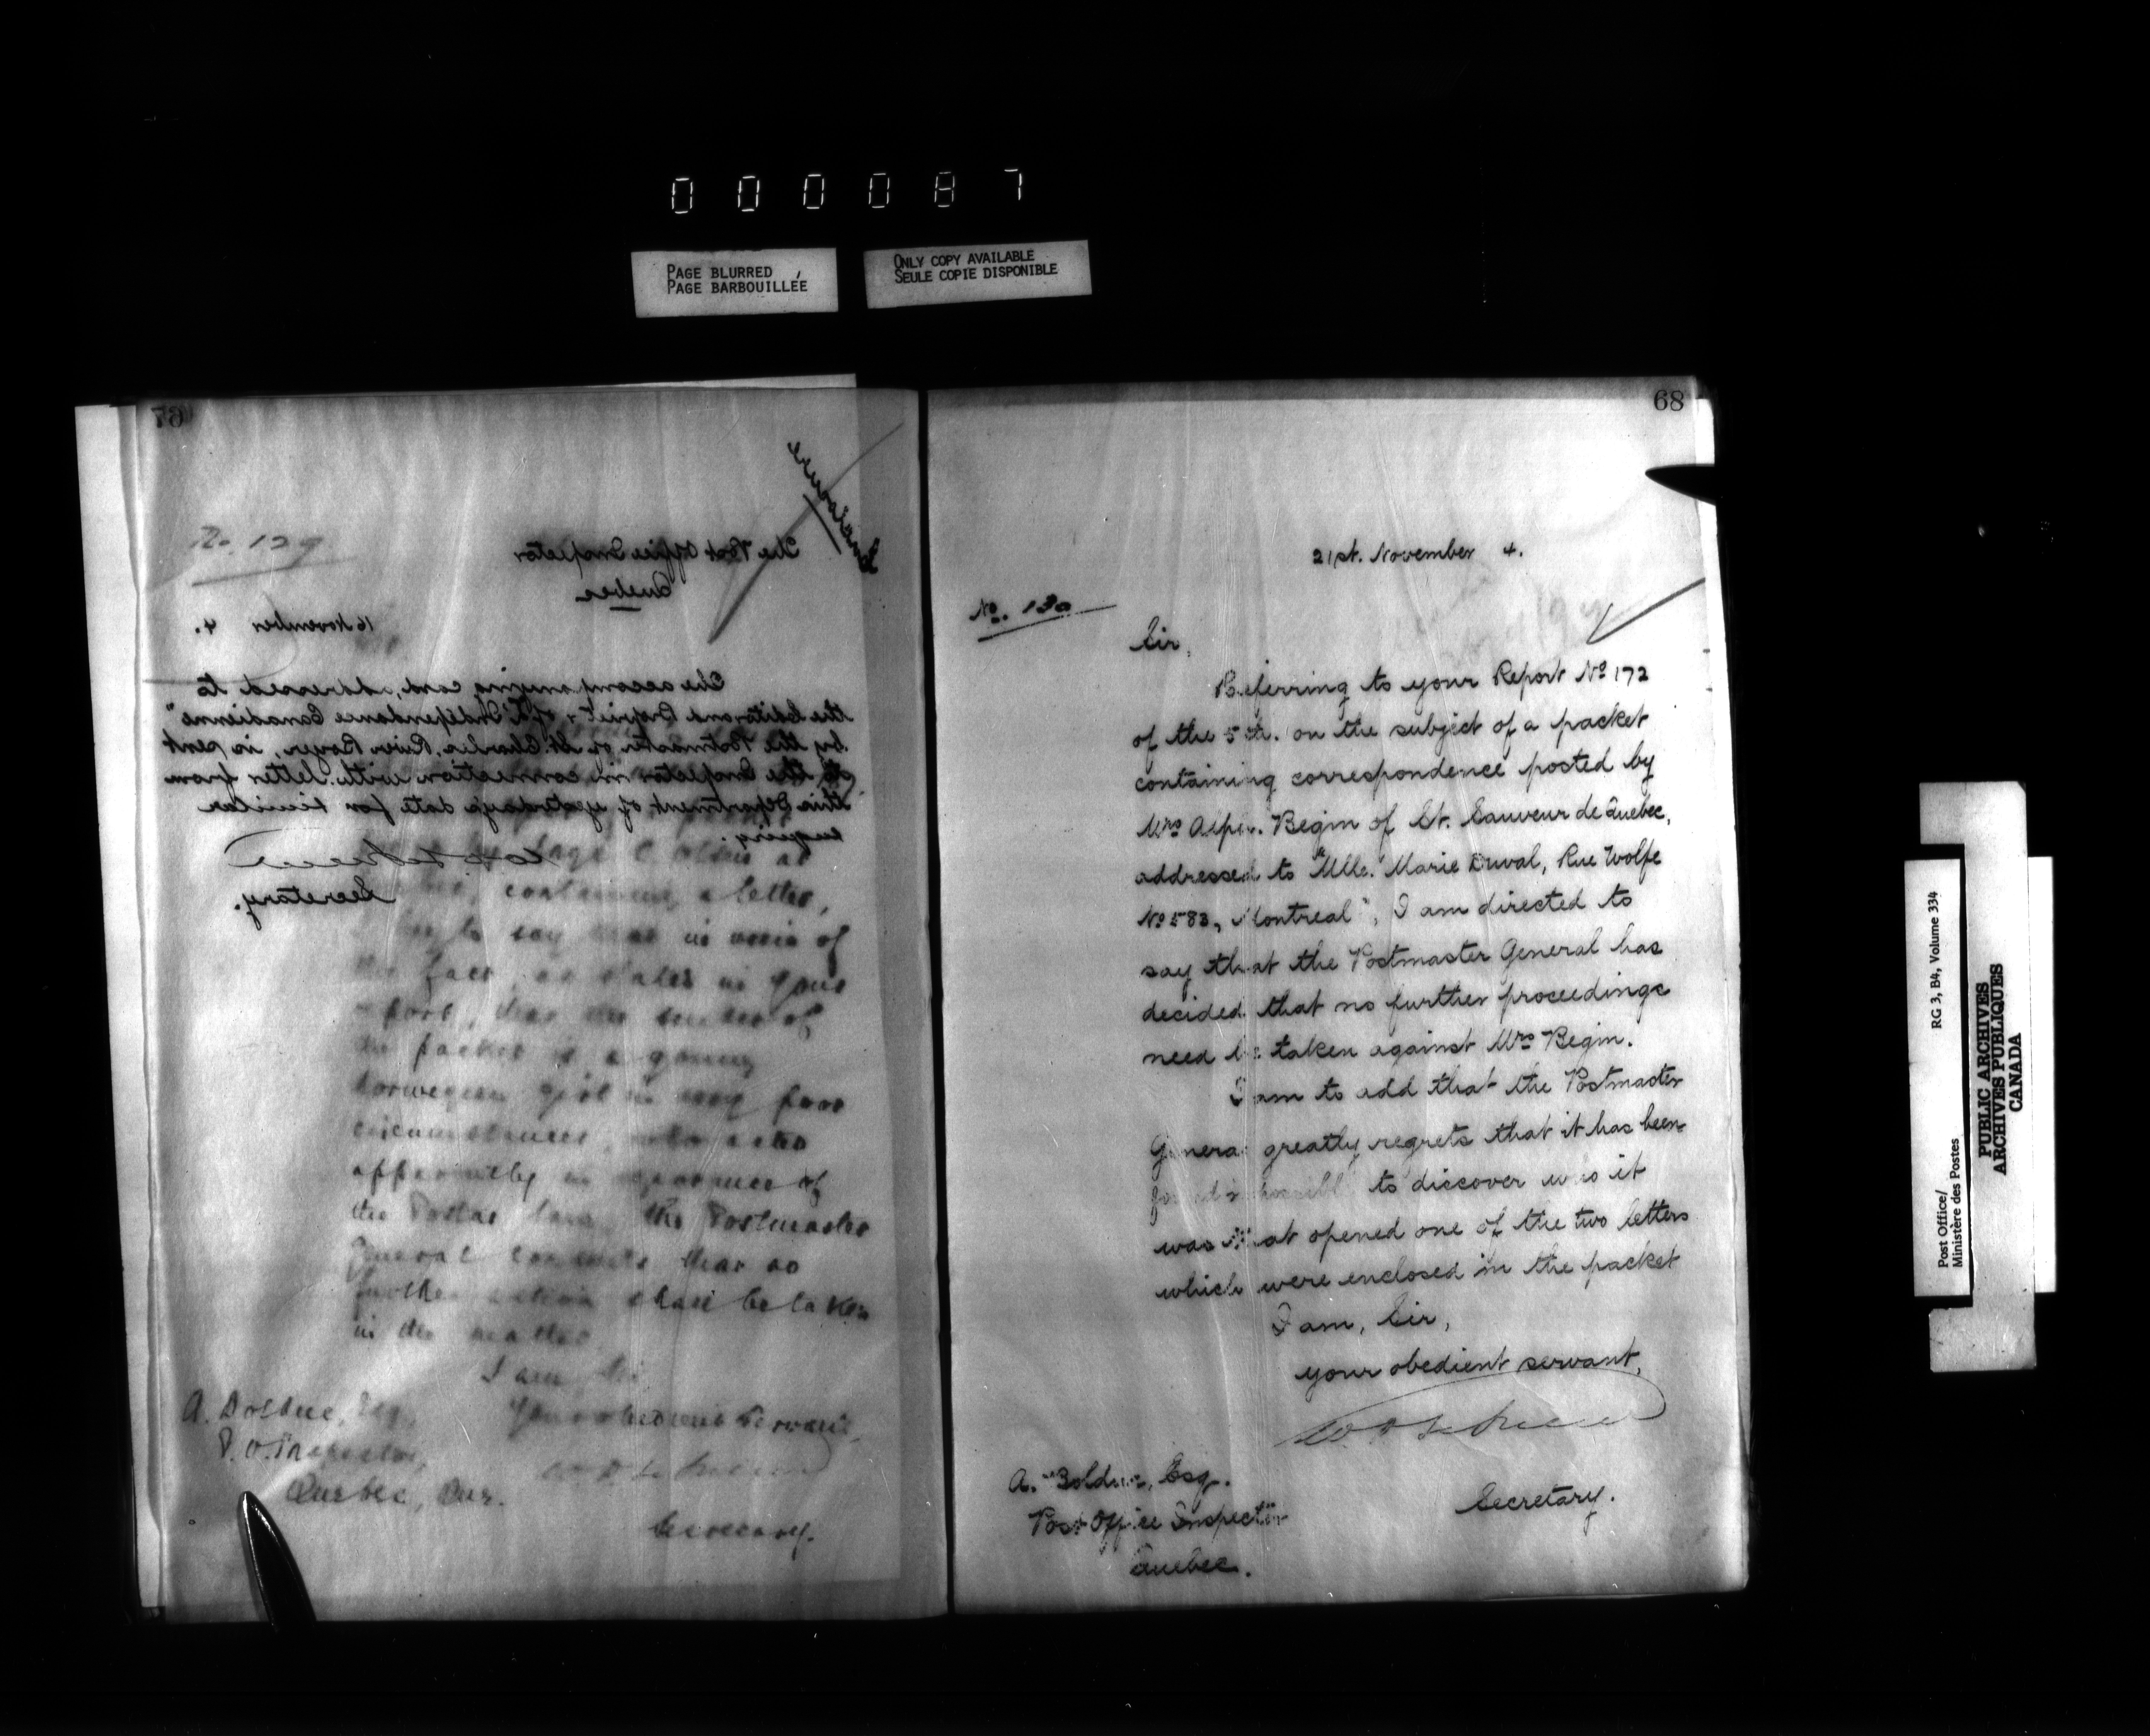 000087
PAGE BLURRED
PAGE BARBOUILLÉE
ONLY COPY AVAILABLE
SEULE COPIE DISPONIBLE
67
Enclosure
No. 129
The Post Office Inspector
Quebec
16 November 4.
The accompanying card, addressed to
the Editor and Propriet'r of "L'Indépendance Canadienne"
by the Postmaster of St. Charles River Boyer, is sent
to the Inspector in connection with letter from
this Department of yesterday's date for similar
enquiry.
Secretary.
containing a letter,
to say that in view of
the fact, as stated in your
report, that the sender of
the packet is a young
Norwegian girl in very poor
circumstances, who acted
apparently in ignorance of
the Postal law, the Postmaster
General consents that no
further action shall be taken
in the matter.
I am, Sir
Your obedient servant,
Secretary.
A. Bolduc, Esq.
P.O. Inspector,
Quebec, Que.
68
21st. November 4.
No. 130
Sir,
Referring to your Report No 172
of the 5th. on the subject of a packet
containing correspondence posted by
Mrs Begin of St. Sauveur de Quebec,
addressed to "Mlle. Marie Duval, Rue Wolfe
No 583, Montreal", I am directed to
say that the Postmaster General has
decided that no further proceedings
need be taken against Mrs Begin.
I am to add that the Postmaster
General greatly regrets that it has been
found impossible to discover who it
was that opened one of the two letters
which were enclosed in the packet
I am, Sir,
your obedient servant,
Secretary.
A. Bolduc, Esq.
Post Office Inspector
Quebec.
Post Office/
Ministère des Postes
RG 3, B4, Volume 334
PUBLIC ARCHIVES
ARCHIVES PUBLIQUES
CANADA